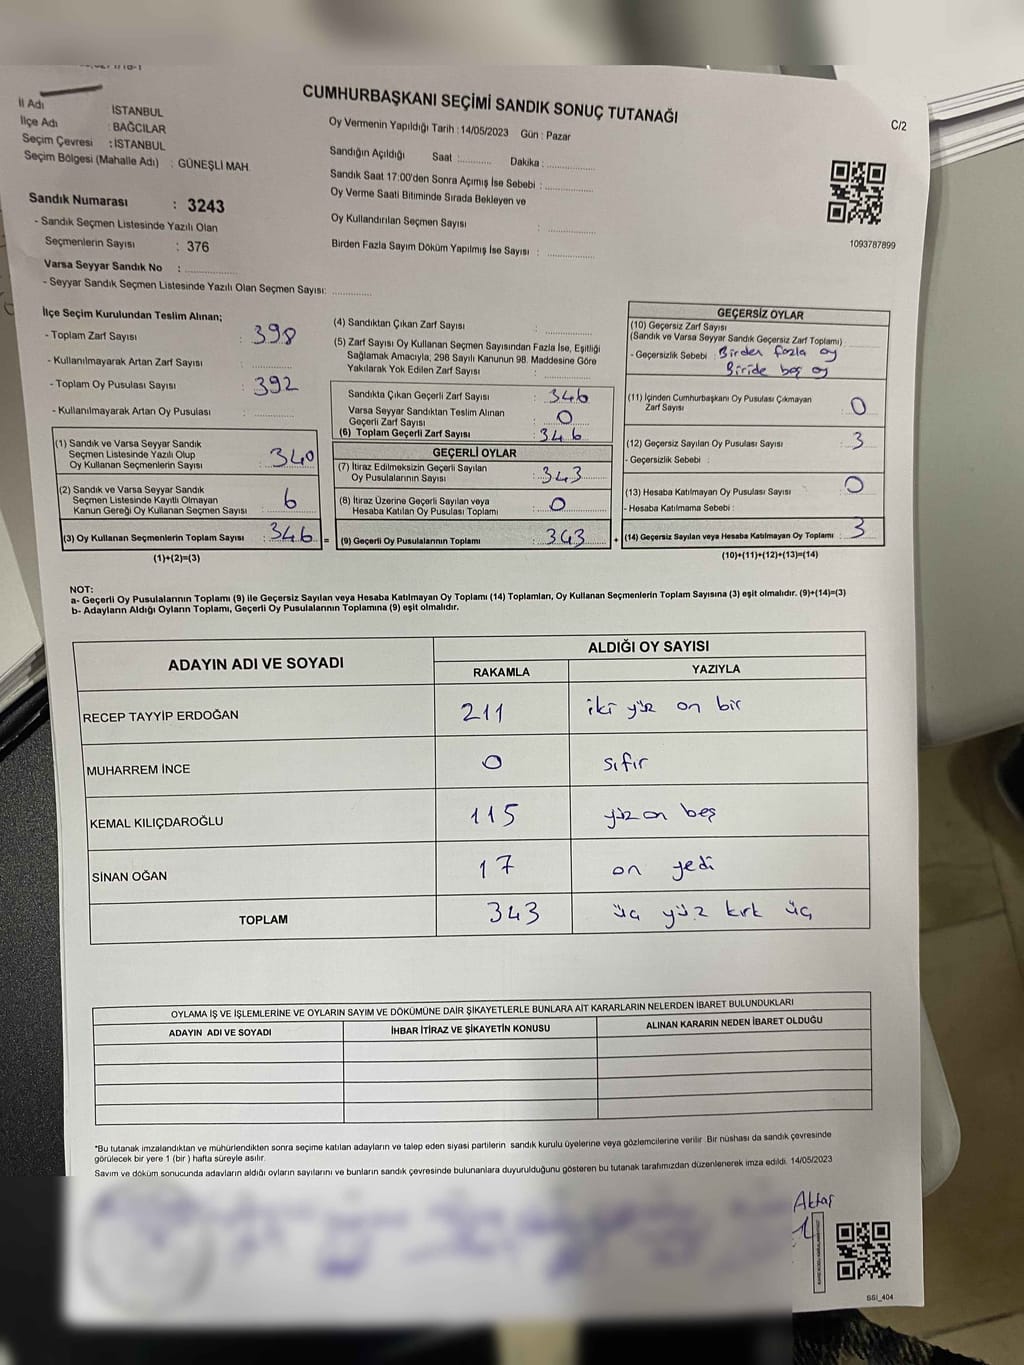 CUMHURBAŞKANI SEÇİMİ SANDIK SONUÇ TUTANAĞI
C/2
İl Adı İSTANBUL
İlçe Adı : BAĞCILAR
Seçim Çevresi : İSTANBUL
Seçim Bölgesi (Mahalle Adı) : GÜNEŞLİ MAH
Sandık Numarası : 3243
- Sandık Seçmen Listesinde Yazılı Olan
Seçmenlerin Sayısı : 376
Varsa Seyyar Sandık No : ..............
- Seyyar Sandık Seçmen Listesinde Yazılı Olan Seçmen Sayısı: ............
Oy Vermenin Yapıldığı Tarih : 14/05/2023 Gün : Pazar
Sandığın Açıldığı Saat :........... Dakika :..............
Sandık Saat 17:00'den Sonra Açımış İse Sebebi :..............
Oy Verme Saati Bitiminde Sırada Bekleyen ve
Oy Kullandırılan Seçmen Sayısı : ..............
Birden Fazla Sayım Döküm Yapılmış İse Sayısı : ..............
1093787899
İlçe Seçim Kurulundan Teslim Alınan;
- Toplam Zarf Sayısı : 398
- Kullanılmayarak Artan Zarf Sayısı : ............
- Toplam Oy Pusulası Sayısı : 392
- Kullanılmayarak Artan Oy Pusulası : ............
(1) Sandık ve Varsa Seyyar Sandık
Seçmen Listesinde Yazılı Olup
Oy Kullanan Seçmenlerin Sayısı : 340
(2) Sandık ve Varsa Seyyar Sandık
Seçmen Listesinde Kayıtlı Olmayan
Kanun Gereği Oy Kullanan Seçmen Sayısı : 6
(3) Oy Kullanan Seçmenlerin Toplam Sayısı : 346 =
(1)+(2)=(3)
(4) Sandıktan Çıkan Zarf Sayısı : ..............
(5) Zarf Sayısı Oy Kullanan Seçmen Sayısından Fazla İse, Eşitliği
Sağlamak Amacıyla; 298 Sayılı Kanunun 98. Maddesine Göre
Yakılarak Yok Edilen Zarf Sayısı : ..............
Sandıkta Çıkan Geçerli Zarf Sayısı : 346
Varsa Seyyar Sandıktan Teslim Alınan
Geçerli Zarf Sayısı : 0
(6) Toplam Geçerli Zarf Sayısı : 346
GEÇERLİ OYLAR
(7) İtiraz Edilmeksizin Geçerli Sayılan
Oy Pusulalarının Sayısı : 343
(8) İtiraz Üzerine Geçerli Sayılan veya
Hesaba Katılan Oy Pusulası Toplamı : 0
(9) Geçerli Oy Pusulalarının Toplamı : 343 +
GEÇERSİZ OYLAR
(10) Geçersiz Zarf Sayısı
(Sandık ve Varsa Seyyar Sandık Geçersiz Zarf Toplamı)
- Geçersizlik Sebebi : Birden fazla oy
Biride boş oy
(11) İçinden Cumhurbaşkanı Oy Pusulası Çıkmayan
Zarf Sayısı : 0
(12) Geçersiz Sayılan Oy Pusulası Sayısı : 3
- Geçersizlik Sebebi :
(13) Hesaba Katılmayan Oy Pusulası Sayısı : 0
- Hesaba Katılmama Sebebi :
(14) Geçersiz Sayılan veya Hesaba Katılmayan Oy Toplamı : 3
(10)+(11)+(12)+(13)=(14)
NOT:
a- Geçerli Oy Pusulalarının Toplamı (9) ile Geçersiz Sayılan veya Hesaba Katılmayan Oy Toplamı (14) Toplamları, Oy Kullanan Seçmenlerin Toplam Sayısına (3) eşit olmalıdır. (9)+(14)=(3)
b- Adayların Aldığı Oyların Toplamı, Geçerli Oy Pusulalarının Toplamına (9) eşit olmalıdır.
ADAYIN ADI VE SOYADI ALDIĞI OY SAYISI
RAKAMLA YAZIYLA
RECEP TAYYİP ERDOĞAN 211 iki yüz on bir
MUHARREM İNCE 0 sıfır
KEMAL KILIÇDAROĞLU 115 yüz on beş
SİNAN OĞAN 17 on yedi
TOPLAM 343 üç yüz kırk üç
OYLAMA İŞ VE İŞLEMLERİNE VE OYLARIN SAYIM VE DÖKÜMÜNE DAİR ŞİKAYETLERLE BUNLARA AİT KARARLARIN NELERDEN İBARET BULUNDUKLARI
ADAYIN ADI VE SOYADI İHBAR İTİRAZ VE ŞİKAYETİN KONUSU ALINAN KARARIN NEDEN İBARET OLDUĞU
*Bu tutanak imzalandıktan ve mühürlendikten sonra seçime katılan adayların ve talep eden siyasi partilerin sandık kurulu üyelerine veya gözlemcilerine verilir. Bir nüshası da sandık çevresinde
görülecek bir yere 1 (bir ) hafta süreyle asılır.
Sayım ve döküm sonucunda adayların aldığı oyların sayılarını ve bunların sandık çevresinde bulunanlara duyurulduğunu gösteren bu tutanak tarafımızdan düzenlenerek imza edildi. 14/05/2023
Aktaş
SSI_404